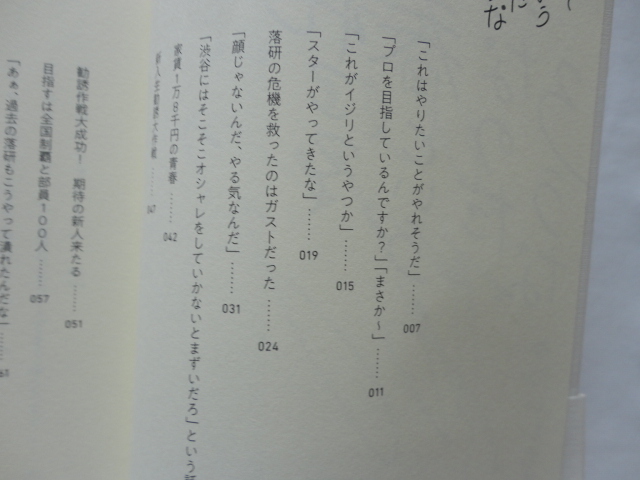 う
に
な
「これはやりたいことがやれそうだ」……007
「プロを目指しているんですか？」「まさか～」……011
「これがイジリというやつか」……015
「スターがやってきたな」……019
落研の危機を救ったのはガストだった……024
「顔じゃないんだ、やる気なんだ」……031
「渋谷にはそこそこオシャレをしていかないとまずいだろ」という
家賃1万8千円の青春……042
新入生勧誘大作戦……047
勧誘作戦大成功！　期待の新人来たる……051
目指すは全国制覇と部員100人……057
「あぁ、過去の落研もこうやって潰れたんだな」……61